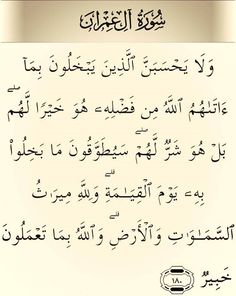 سُورَةُ آلِ عِمْرَان
وَلَا يَحْسَبَنَّ الَّذِينَ يَبْخَلُونَ بِمَآ
ءَاتَىٰهُمُ اللَّهُ مِن فَضْلِهِۦ هُوَ خَيْرًا لَّهُم ۖ
بَلْ هُوَ شَرٌّ لَّهُمْ ۖ سَيُطَوَّقُونَ مَا بَخِلُوا۟
بِهِۦ يَوْمَ الْقِيَٰمَةِ ۗ وَلِلَّهِ مِيرَٰثُ
السَّمَٰوَٰتِ وَالْأَرْضِ ۗ وَاللَّهُ بِمَا تَعْمَلُونَ
خَبِيرٌ ١٨٠